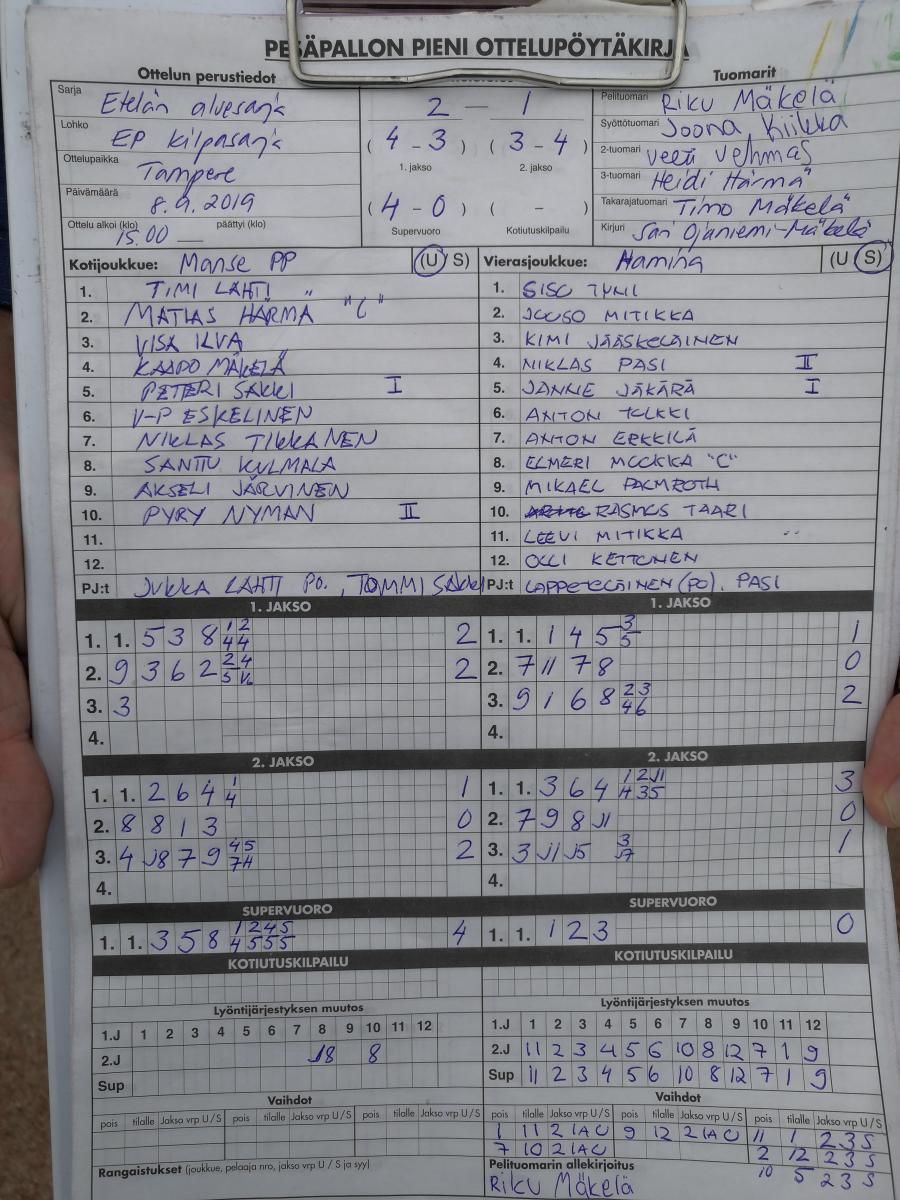 PESÄPALLON PIENI OTTELUPÖYTÄKIRJA
Ottelun perustiedot
Tuomarit
Sarja Etelän aluesarja
Lohko EP kilpasarja
Ottelupaikka Tampere
Päivämäärä 8.9.2019
Ottelu alkoi (klo) 15.00 päättyi (klo)
2 — 1
(4 - 3) (3 - 4)
1. jakso 2. jakso
(4 - 0) ( - )
Supervuoro Kotiutuskilpailu
Pelituomari Riku Mäkelä
Syöttötuomari Joona Kiikka
2-tuomari Veeti Vehmas
3-tuomari Heidi Härmä
Takarajatuomari Timo Mäkelä
Kirjuri Sari Ojaniemi-Mäkelä
Kotijoukkue: Manse PP (U/S)
1. TIMI LAHTI "
2. MATIAS HÄRMÄ "C"
3. VISA ILVA
4. KAAPO MÄKELÄ
5. PETTERI SAKKI I
6. V-P ESKELINEN
7. NIKLAS TIKKANEN
8. SANTTU KULMALA
9. AKSELI JÄRVINEN
10. PYRY NYMAN II
11.
12.
PJ:t JUKKA LAHTI PO., TOMMI SAKKI
Vierasjoukkue: Hamina (U/S)
1. SISU TYNI
2. JUUSO MITIKKA
3. KIMI JÄÄSKELÄINEN
4. NIKLAS PASI II
5. JANNE JÄKÄRÄ I
6. ANTON
7. ANTON ERKKILÄ
8. ELMERI "C"
9. MIKAEL PALMROTH
10. RASMUS TAARI
11. LEEVI MITIKKA
12. OLLI KETTUNEN
PJ:t LAPPETELÄINEN (PO), PASI
1. JAKSO
1. 1. 5 3 8 1 2 2
4 4
2. 9 3 6 2 2 4 2
5
3. 3
4.
1. JAKSO
1. 1. 1 4 5 3 1
5
2. 7 11 7 8 0
3. 9 1 6 8 2 3 2
4 6
4.
2. JAKSO
1. 1. 2 6 4 1 1
4
2. 8 8 1 3 0
3. 4 J8 7 9 4 5 2
7
4.
2. JAKSO
1. 1. 3 6 4 1 2 J1 3
4 3 5
2. 7 9 8 J1 0
3. 3 J1 J5 3 1
J7
4.
SUPERVUORO
1. 1. 3 5 8 1 2 4 5 4
4 5 5 5
SUPERVUORO
1. 1. 1 2 3 0
KOTIUTUSKILPAILU
KOTIUTUSKILPAILU
Lyöntijärjestyksen muutos
1.J 1 2 3 4 5 6 7 8 9 10 11 12
2.J J8 8
Sup
Lyöntijärjestyksen muutos
1.J 1 2 3 4 5 6 7 8 9 10 11 12
2.J 11 2 3 4 5 6 10 8 12 7 1 9
Sup 11 2 3 4 5 6 10 8 12 7 1 9
Vaihdot
pois tilalle Jakso vrp U/S pois tilalle Jakso vrp U/S pois tilalle Jakso vrp U/S
Rangaistukset (joukkue, pelaaja nro, jakso vrp U / S ja syy)
Vaihdot
pois tilalle Jakso vrp U/S pois tilalle Jakso vrp U/S pois tilalle Jakso vrp U/S
1 11 2 1AU 9 12 2 1AU 11 1 2 3 S
7 10 2 1AU 2 12 2 3 S
10 5 2 3 S
Pelituomarin allekirjoitus
Riku Mäkelä